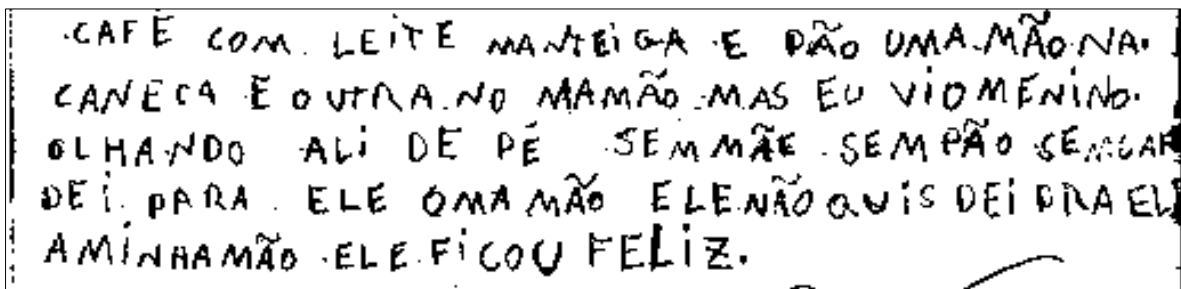 CAFÉ COM LEITE MANTEIGA E PÃO UMA MÃO NA.
CANECA E OUTRA NO MAMÃO MAS EU VIOMENINO.
OLHANDO ALI DE PÉ SEM MÃE SEM PÃO
DEI PARA ELE OMAMÃO ELE NÃO QUIS DEI PRA
AMINHAMÃO ELE FICOU FELIZ.